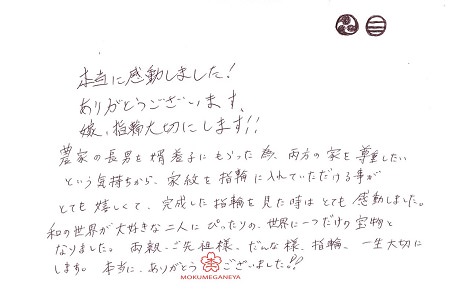 本当に感動しました!
ありがとうございます。
嫁、指輪大切にします!!
農家の長男を婿養子にもらった為、両方の家を尊重したい
という気持ちから、家紋を指輪に入れていただける事が
とても嬉しくて、完成した指輪を見た時はとても感動しました。
和の世界が大好きな二人にぴったりの、世界に一つだけの宝物と
なりました。両親、ご先祖様、だんな様、指輪、一生大切に
します。本当に、ありがとうございました!!
MOKUMEGANEYA